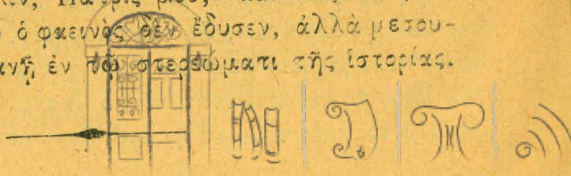 ὁ φαεινὸς δὲν ἔδυσεν, ἀλλὰ μετου-
ἐν τῷ στερεώματι τῆς ἱστορίας.